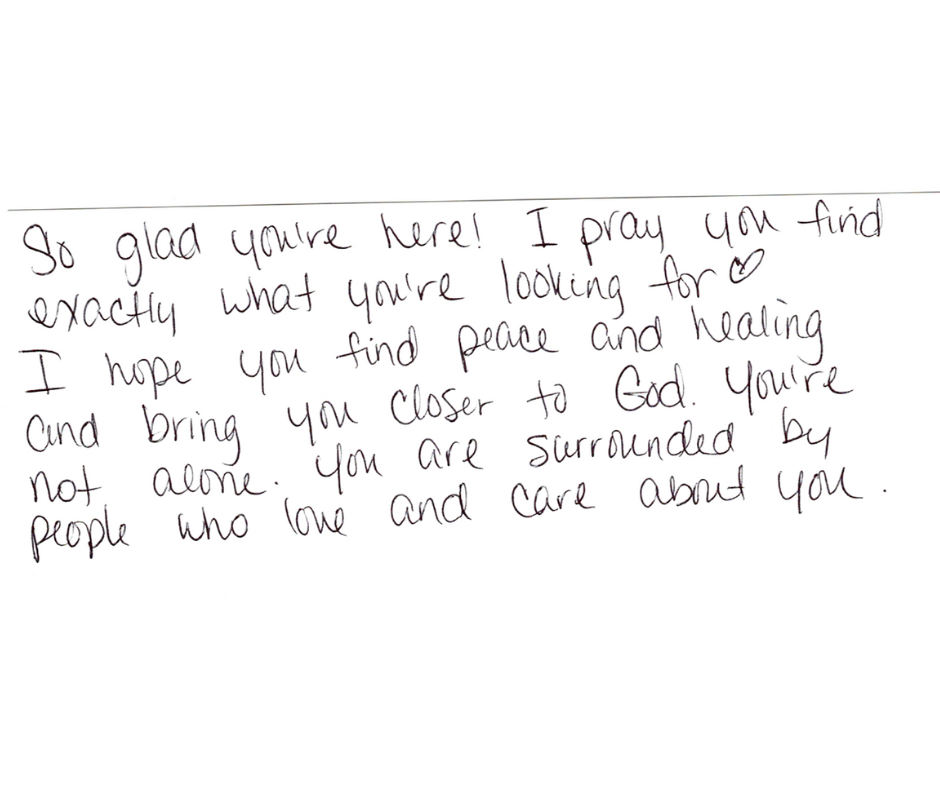 So glad you're here! I pray you find
exactly what you're looking for ♡
I hope you find peace and healing
and bring you closer to God. You're
not alone. You are surrounded by
people who love and care about you.